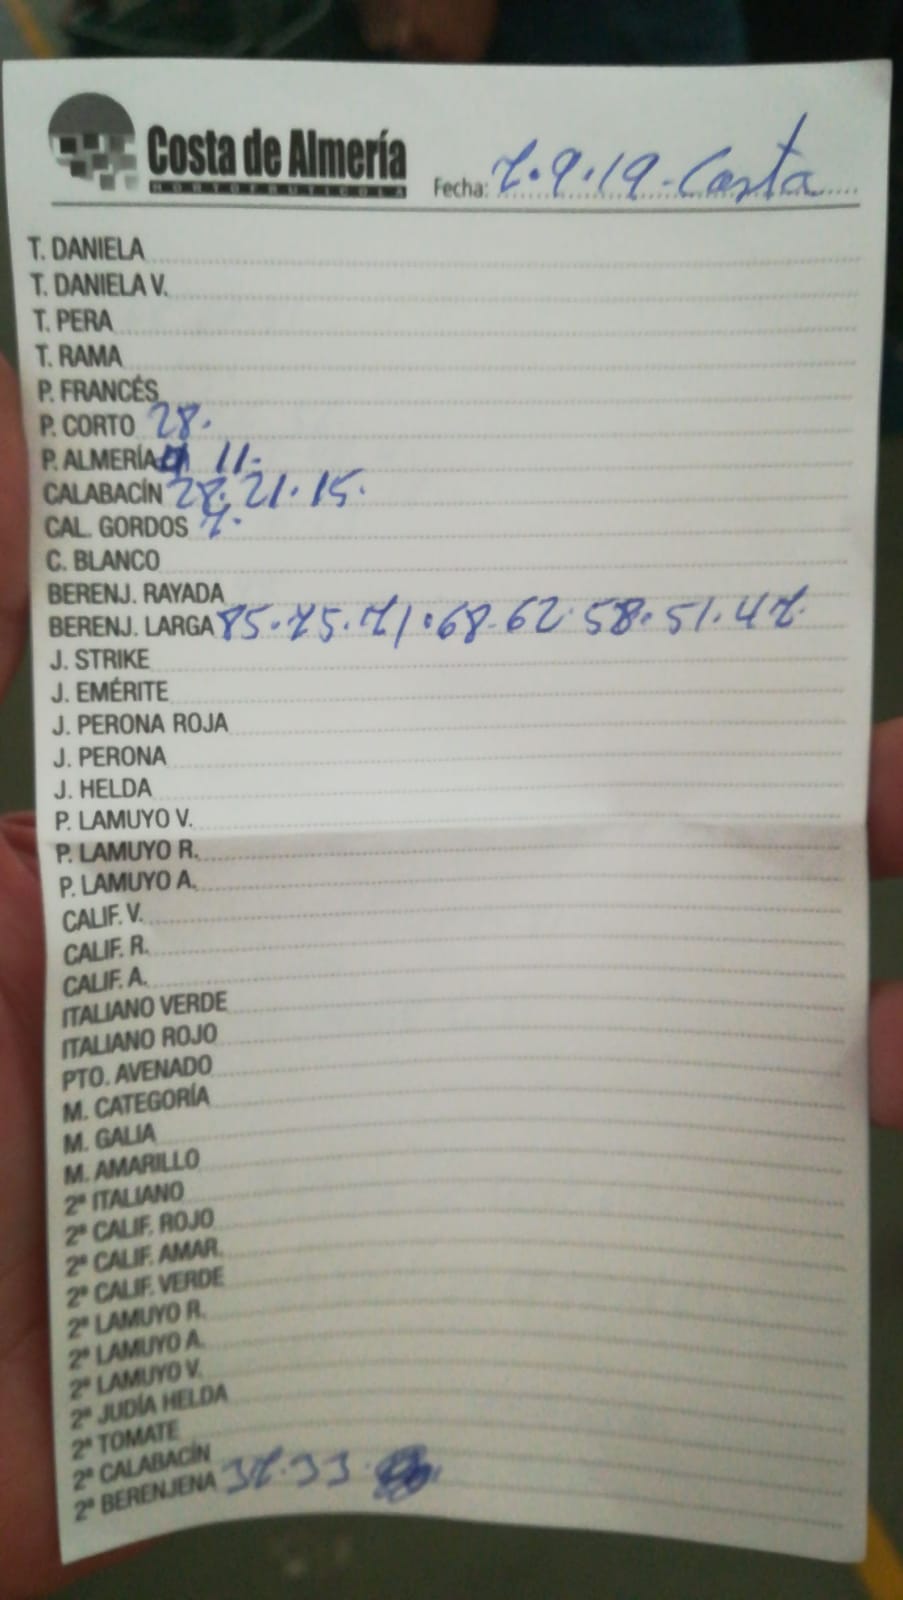 Costa de Almería
HORTOFRUTICOLA
Fecha: 7.9.19. Costa
T. DANIELA
T. DANIELA V.
T. PERA
T. RAMA
P. FRANCÉS
P. CORTO 28.
P. ALMERÍA 11.
CALABACÍN 28. 21. 15.
CAL. GORDOS 7.
C. BLANCO
BERENJ. RAYADA
BERENJ. LARGA 85. 75. 71. 68. 62. 58. 51. 47.
J. STRIKE
J. EMÉRITE
J. PERONA ROJA
J. PERONA
J. HELDA
P. LAMUYO V.
P. LAMUYO R.
P. LAMUYO A.
CALIF. V.
CALIF. R.
CALIF. A.
ITALIANO VERDE
ITALIANO ROJO
PTO. AVENADO
M. CATEGORÍA
M. GALIA
M. AMARILLO
2ª ITALIANO
2ª CALIF. ROJO
2ª CALIF. AMAR.
2ª CALIF. VERDE
2ª LAMUYO R.
2ª LAMUYO A.
2ª LAMUYO V.
2ª JUDÍA HELDA
2ª TOMATE
2ª CALABACÍN
2ª BERENJENA 37. 33.